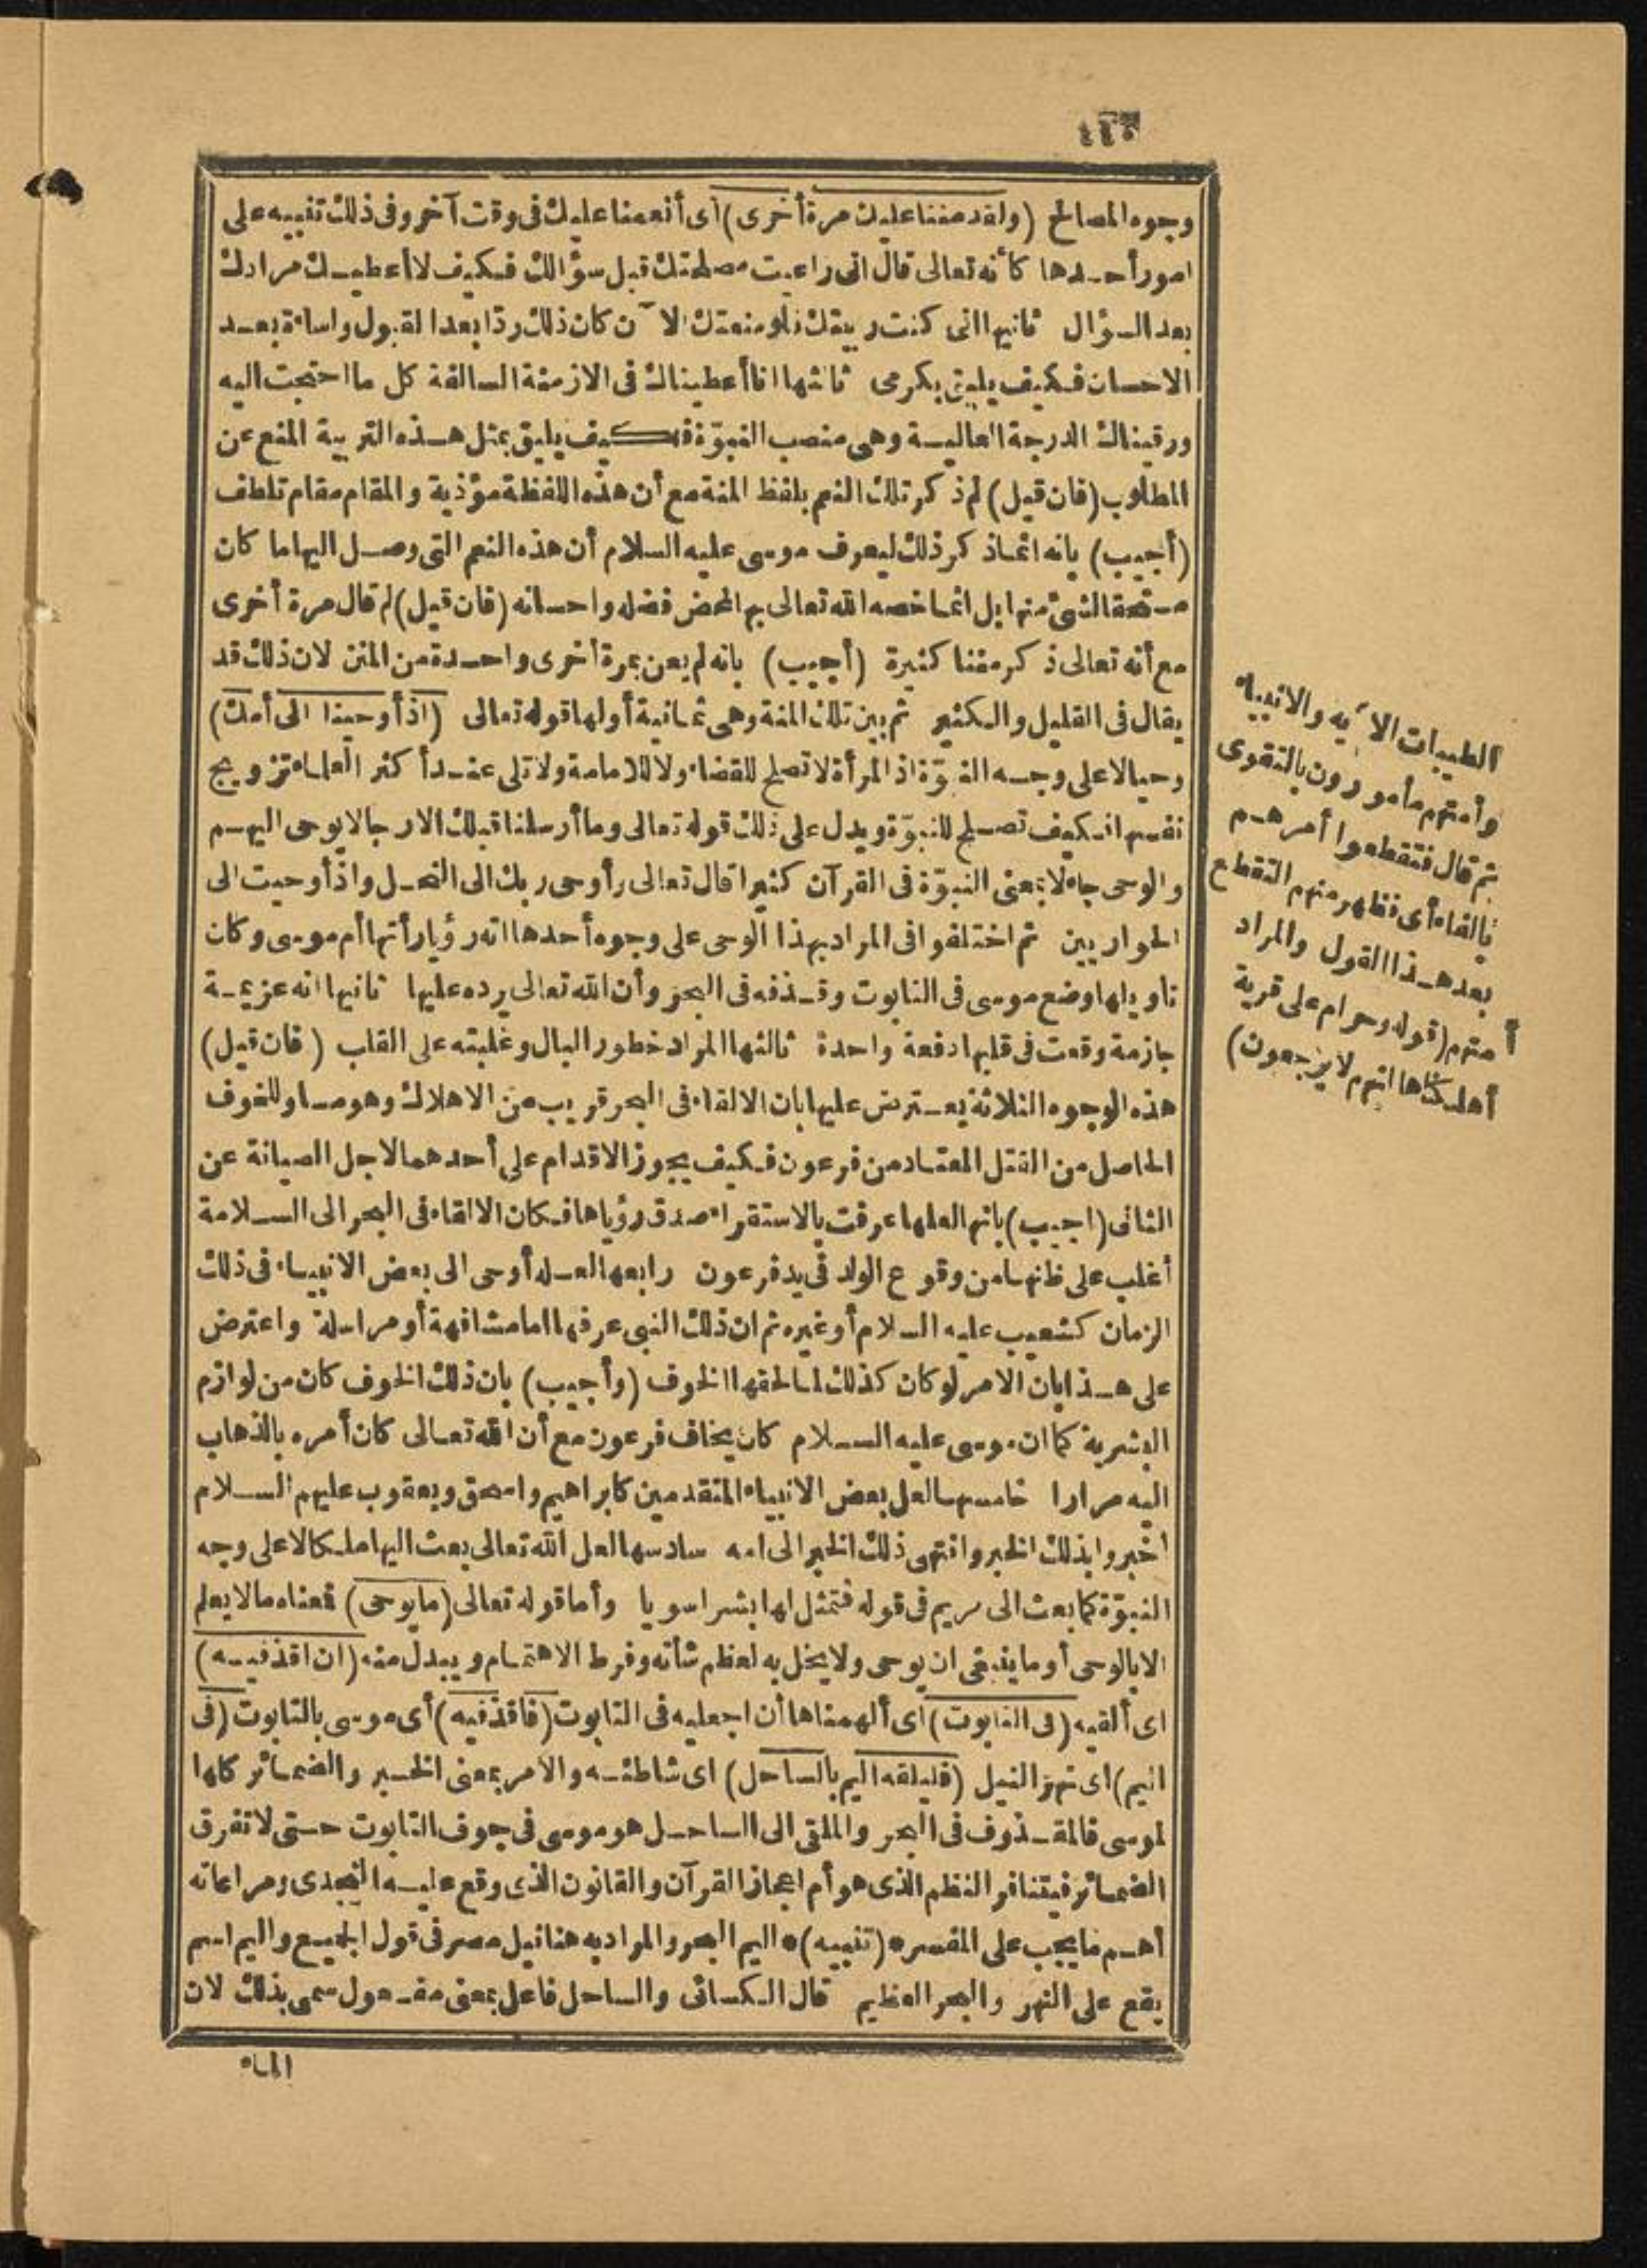 ٤٤٥
وجوه المصالح (ولقد مننا عليك مرة أخرى) أى أنعمنا عليك فى وقت آخر وفى ذلك تنبيه على
امور أحدها كأنه تعالى قال انى راعيت مصلحتك قبل سؤالك فكيف لا أعطيك مرادك
بعد السؤال ثانيها انى كنت ربيتك فلو منعتك الا ٓن كان ذلك ردّا بعد القبول واساءة بعد
الاحسان فكيف يليق بكرمى ثالثها انا أعطيناك فى الازمنة السالفة كل ما احتجت اليه
ورقيناك الدرجة العالية وهى منصب النبوّة فكيف يليق بمثل هذه التربية المنع عن
المطلوب (فان قيل) لم ذكر تلك النعم بلفظ المنة مع أن هذه اللفظة مؤذية والمقام مقام تلطف
(أجيب) بانه انما ذكر ذلك ليعرف موسى عليه السلام أن هذه النعم التى وصل اليها ما كان
مستحقا لشئ منها بل انما خصه الله تعالى بها لمحض فضله واحسانه (فان قيل) لم قال مرة أخرى
مع أنه تعالى ذكر مننا كثيرة (أجيب) بانه لم يعن بمرة أخرى واحدة من المنن لان ذلك قد
يقال فى القليل والكثير ثم بين تلك المنة وهى ثمانية أولها قوله تعالى (اذ أوحينا الى أمك)
وحيا لا على وجه النبوّة اذ المرأة لا تصلح للقضاء ولا للامامة ولا تلى عند أكثر العلماء تزويج
نفسها فكيف تصلح للنبوّة ويدل على ذلك قوله تعالى وما أرسلنا قبلك الا رجالا يوحى اليهم
والوحى جاء لا بمعنى النبوّة فى القرآن كثيرا قال تعالى وأوحى ربك الى النحل واذ أوحيت الى
الحواريين ثم اختلفوا فى المراد بهذا الوحى على وجوه أحدها انه رؤيا رأتها أم موسى وكان
تاويلها وضع موسى فى التابوت وقذفه فى البحر وأن الله تعالى يرده عليها ثانيها انه عزيمة
جازمة وقعت فى قلبها دفعة واحدة ثالثها المراد خطور البال وغلبته على القلب (فان قيل)
هذه الوجوه الثلاثة يعترض عليها بان الالقاء فى البحر قريب من الاهلاك وهو مساو للخوف
الحاصل من القتل المعتاد من فرعون فكيف يجوز الاقدام على أحدهما لاجل الصيانة عن
الثانى (اجيب) بانها لعلها عرفت بالاستقراء صدق رؤياها فكان الالقاء فى البحر الى السلامة
أغلب على ظنها من وقوع الولد فى يد فرعون رابعها لعله أوحى الى بعض الانبياء فى ذلك
الزمان كشعيب عليه السلام أو غيره ثم ان ذلك النبى عرفها اما مشافهة أو مراسلة واعترض
على هذا بان الامر لو كان كذلك لما لحقها الخوف (وأجيب) بان ذلك الخوف كان من لوازم
البشرية كما ان موسى عليه السلام كان يخاف فرعون مع أن الله تعالى كان أمره بالذهاب
اليه مرارا خامسها لعل بعض الانبياء المتقدمين كابراهيم واسحق ويعقوب عليهم السلام
أخبروا بذلك الخبر وانتهى ذلك الخبر الى امه سادسها لعل الله تعالى بعث اليها ملكا لا على وجه
النبوّة كما بعث الى مريم فى قوله فتمثل لها بشرا سويا وأما قوله تعالى (ما يوحى) فمعناه ما لا يعلم
الا بالوحى أو ما ينبغى ان يوحى ولا يخل به لعظم شأنه وفرط الاهتمام ويبدل منه (ان اقذفيه)
اى ألقيه (فى التابوت) اى ألهمناها أن اجعليه فى التابوت (فاقذفيه) أى موسى بالتابوت (فى
اليم) اى نهر النيل (فليلقه اليم بالساحل) اى شاطئه والامر بمعنى الخبر والضمائر كلها
لموسى فالمقذوف فى البحر والملقى الى الساحل هو موسى فى جوف التابوت حتى لا تفرق
الضمائر فيتنافر النظم الذى هو أم اعجاز القرآن والقانون الذى وقع عليه التحدى ومراعاته
أهم ما يجب على المفسر * (تنبيه) * اليم البحر والمراد به هنا نيل مصر فى قول الجميع واليم اسم
يقع على النهر والبحر العظيم قال الكسائى والساحل فاعل بمعنى مفعول سمى بذلك لان
الماء
الطيبات الا ٓية والانبياء
وأمتهم مأمورون بالتقوى
ثم قال فتقطعوا أمرهم
بالفاء أى فظهر منهم التقطع
بعد هذا القول والمراد
أ متهم (قوله وحرام على قرية
أهلكناها انهم لا يرجعون)